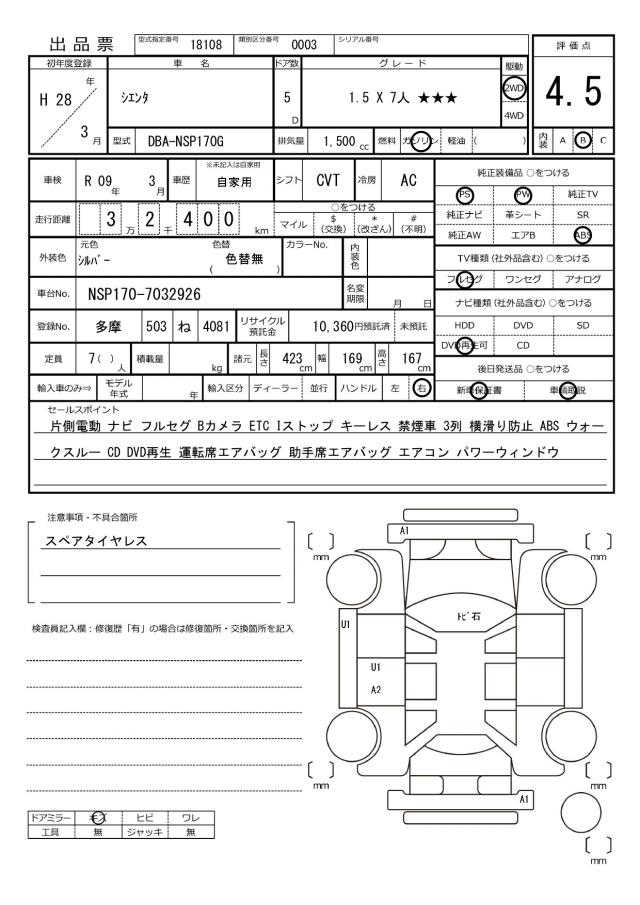 出品票 型式指定番号 18108 類別区分番号 0003 シリアル番号 評価点
初年度登録 車名 ドア数 グレード 駆動
H 28 年 3 月 シエンタ 5 D 1.5 X 7人 ★★★ 2WD 4WD 4.5
型式 DBA-NSP170G 排気量 1,500 cc 燃料 ガソリン 軽油 ( ) 内装 A B C
車検 R 09 年 3 月 車歴 ※未記入は自家用 自家用 シフト CVT 冷房 AC
走行距離 3 万 2 千 4 0 0 km ○をつける
マイル $ (交換) * (改ざん) # (不明)
外装色 元色 シルバー 色替 ( 色替無 ) カラーNo. 内装色
車台No. NSP170-7032926 名変期限 月 日
登録No. 多摩 503 ね 4081 リサイクル預託金 10,360円預託済 未預託
定員 7( ) 人 積載量 kg 諸元 長さ 423 cm 幅 169 cm 高さ 167 cm
輸入車のみ⇒ モデル年式 年 輸入区分 ディーラー 並行 ハンドル 左 右
純正装備品 ○をつける
PS PW 純正TV
純正ナビ 革シート SR
純正AW エアB ABS
TV種類 (社外品含む) ○をつける
フルセグ ワンセグ アナログ
ナビ種類 (社外品含む) ○をつける
HDD DVD SD
DVD再生可 CD
後日発送品 ○をつける
新車保証書 車輌取説
セールスポイント
片側電動 ナビ フルセグ Bカメラ ETC Iストップ キーレス 禁煙車 3列 横滑り防止 ABS ウォー
クスルー CD DVD再生 運転席エアバッグ 助手席エアバッグ エアコン パワーウィンドウ
注意事項・不具合箇所
スペアタイヤレス
検査員記入欄：修復歴「有」の場合は修復箇所・交換箇所を記入
A1
[ ] mm
[ ] mm
トビ石
U1
U1
A2
[ ] mm
[ ] mm
A1
[ ] mm
ドアミラー キズ ヒビ ワレ
工具 無 ジャッキ 無